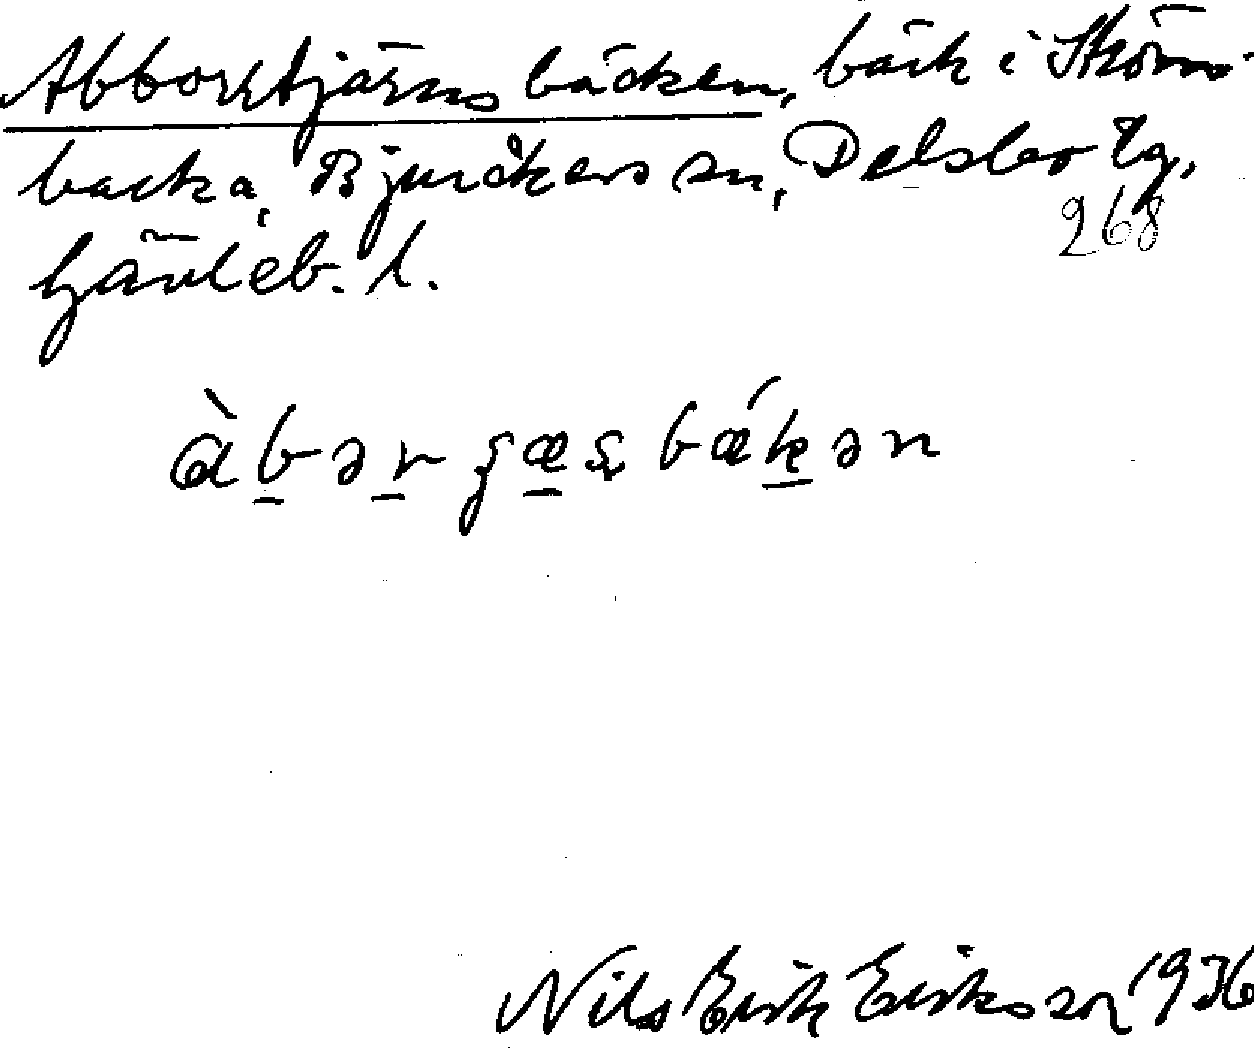 Abborrtjärnsbäcken, bäck i Ström-
backa, Bjuråkers sn, Delsbo tg,
268
Gävleb. l.
àbər bǽkən
Nils Erik Eriksson 1936